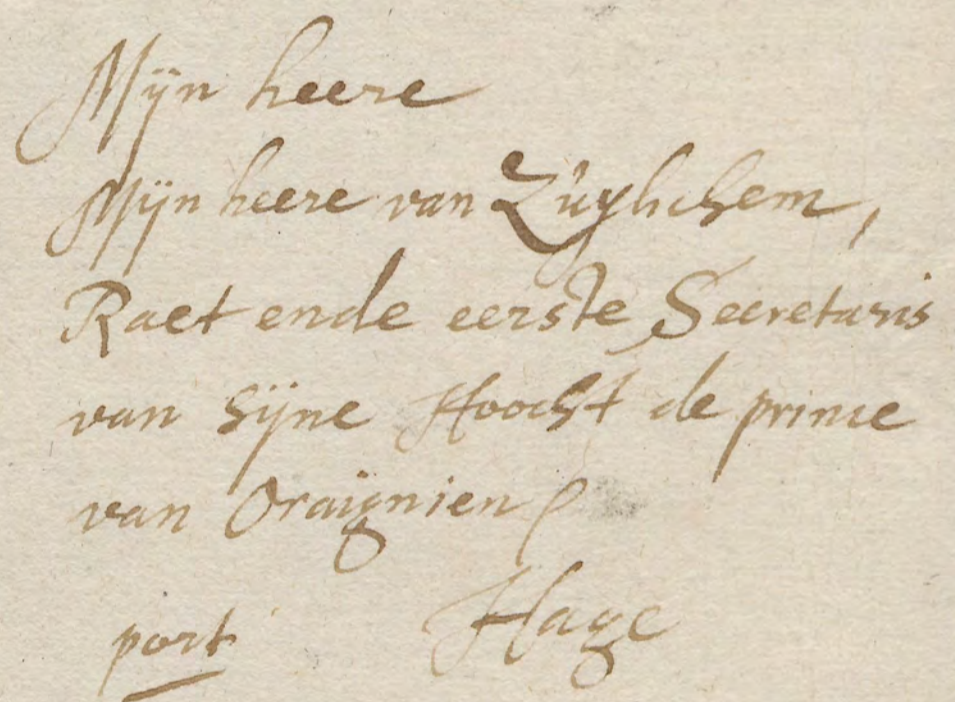 Mijn heere
Mijn heere van Zuylichem,
Raet ende eerste Secretaris
van sijne Hoocht de prince
van Oraignien
port Hage